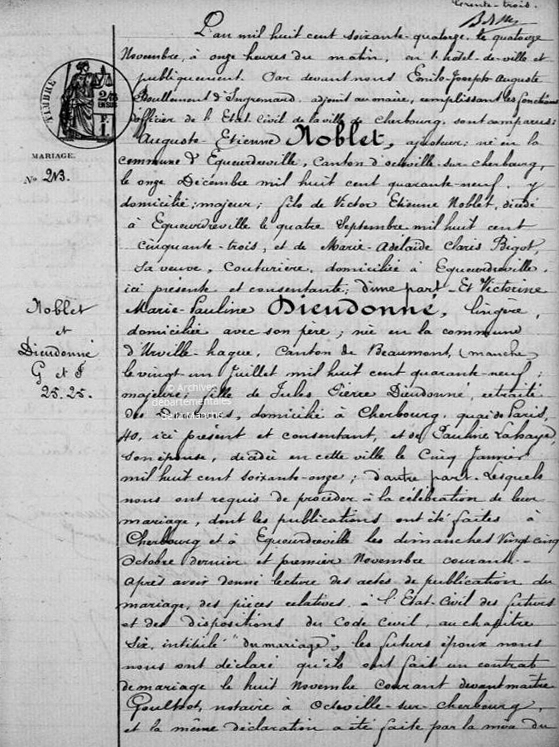 trente-trois.
L'an mil huit cent soixante-quatorze, le quatorze
Novembre, à onze heures du matin, en l'hôtel-de-ville et
publiquement. Par devant nous Emile-Joseph-Auguste
adjoint au maire, remplissant les fonctions
d'officier de l'Etat Civil de la ville de Cherbourg, sont comparus:
Auguste-Etienne Noblet, ajusteur; né en la
commune d'Equeurdreville, Canton d'Octeville-sur-Cherbourg,
le onze Décembre mil huit cent quarante-neuf, y
domicilié; majeur; fils de Victor Etienne Noblet, décédé
à Equeurdreville le quatre Septembre mil huit cent
cinquante-trois, et de Marie-Adelaïde Claris Bigot,
sa veuve, Couturière, domiciliée à Equeurdreville,
ici présente et consentante; d'une part. Et Victoire
Marie-Pauline Dieudonné, lingère,
domiciliée avec son père; née en la commune
d'Urville-hague, Canton de Beaumont, (manche)
le vingt-un Juillet mil huit cent quarante-neuf;
majeure; fille de Jules Pierre Dieudonné, retraité
des Douanes, domicilié à Cherbourg, quai de Paris,
40, ici présent et consentant, et de Pauline Lahaye,
son épouse, décédée en cette ville le Cinq Janvier
mil huit cent soixante-onze; d'autre part. Lesquels
nous ont requis de procéder à la célébration de leur
mariage, dont les publications ont été faites à
Cherbourg et à Equeurdreville les dimanches Vingt-cinq
Octobre dernier et premier Novembre courant.-
Après avoir donné lecture des actes de publication du
mariage, des pièces relatives à l'Etat-Civil des futurs
et des dispositions du Code Civil, au chapitre
Six, intitulé "du mariage", les futurs époux nous
nous ont déclaré qu'ils ont fait un contrat
de mariage le huit Novembre courant devant maître
notaire à Octeville-sur-Cherbourg,
et la même déclaration a été faite par la mère du
TIMBRE
MARIAGE.
No 213.
Noblet
et
Dieudonné
G et F
25. 25.
© Archives
départementales
de la Manche